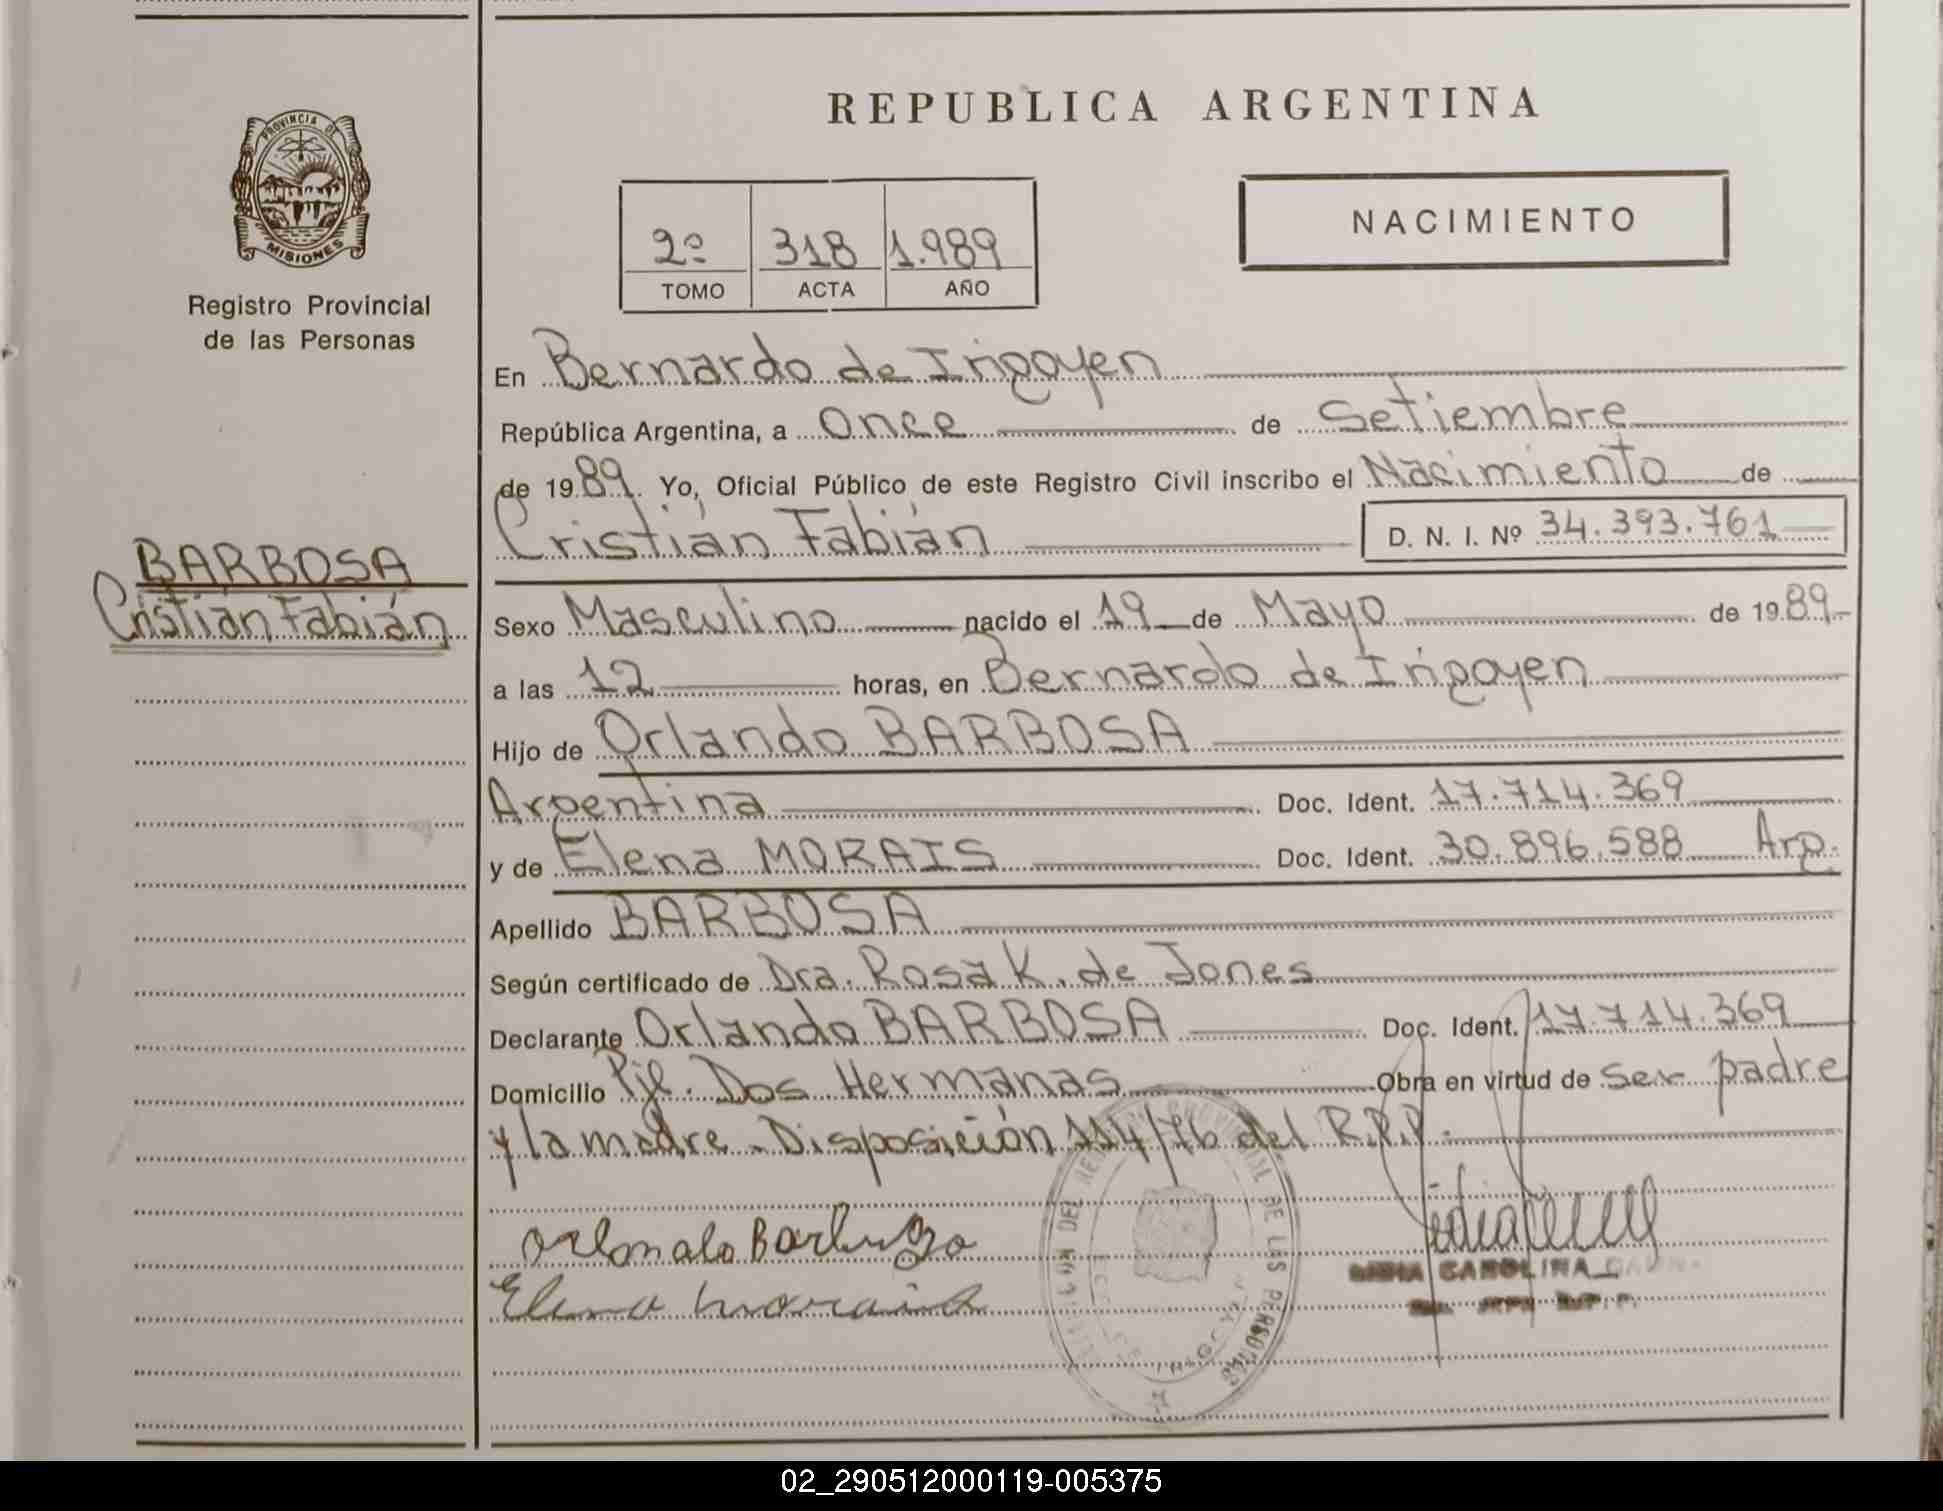 REPUBLICA ARGENTINA
PROVINCIA DE
MISIONES
Registro Provincial
de las Personas
2º 318 1.989
TOMO ACTA AÑO
NACIMIENTO
En Bernardo de Irigoyen
República Argentina, a Once de Setiembre
de 1989. Yo, Oficial Público de este Registro Civil inscribo el Nacimiento de
Cristián Fabián D. N. I. Nº 34.393.761
BARBOSA
Cristián Fabián
Sexo Masculino nacido el 19 de Mayo de 1989
a las 12 horas, en Bernardo de Irigoyen
Hijo de Orlando BARBOSA
Argentina Doc. Ident. 17.714.369
y de Elena MORAIS Doc. Ident. 30.896.588 Arg.
Apellido BARBOSA
Según certificado de Dra. Rosa K. de Jones
Declarante Orlando BARBOSA Doc. Ident. 17.714.369
Domicilio Pje. Dos Hermanas Obra en virtud de ser padre
y la madre. Disposición 114/76 del R.P.P.
Elena Morais
CAROLINA
DEL REGISTRO PROVINCIAL DE LAS PERSONAS
02_290512000119-005375